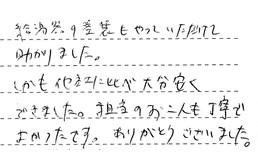 給湯器の塗装もやっていただけて
助かりました。
しかも他社に比べ大分安く
できました。担当のお二人も丁寧で
よかったです。ありがとうございました。